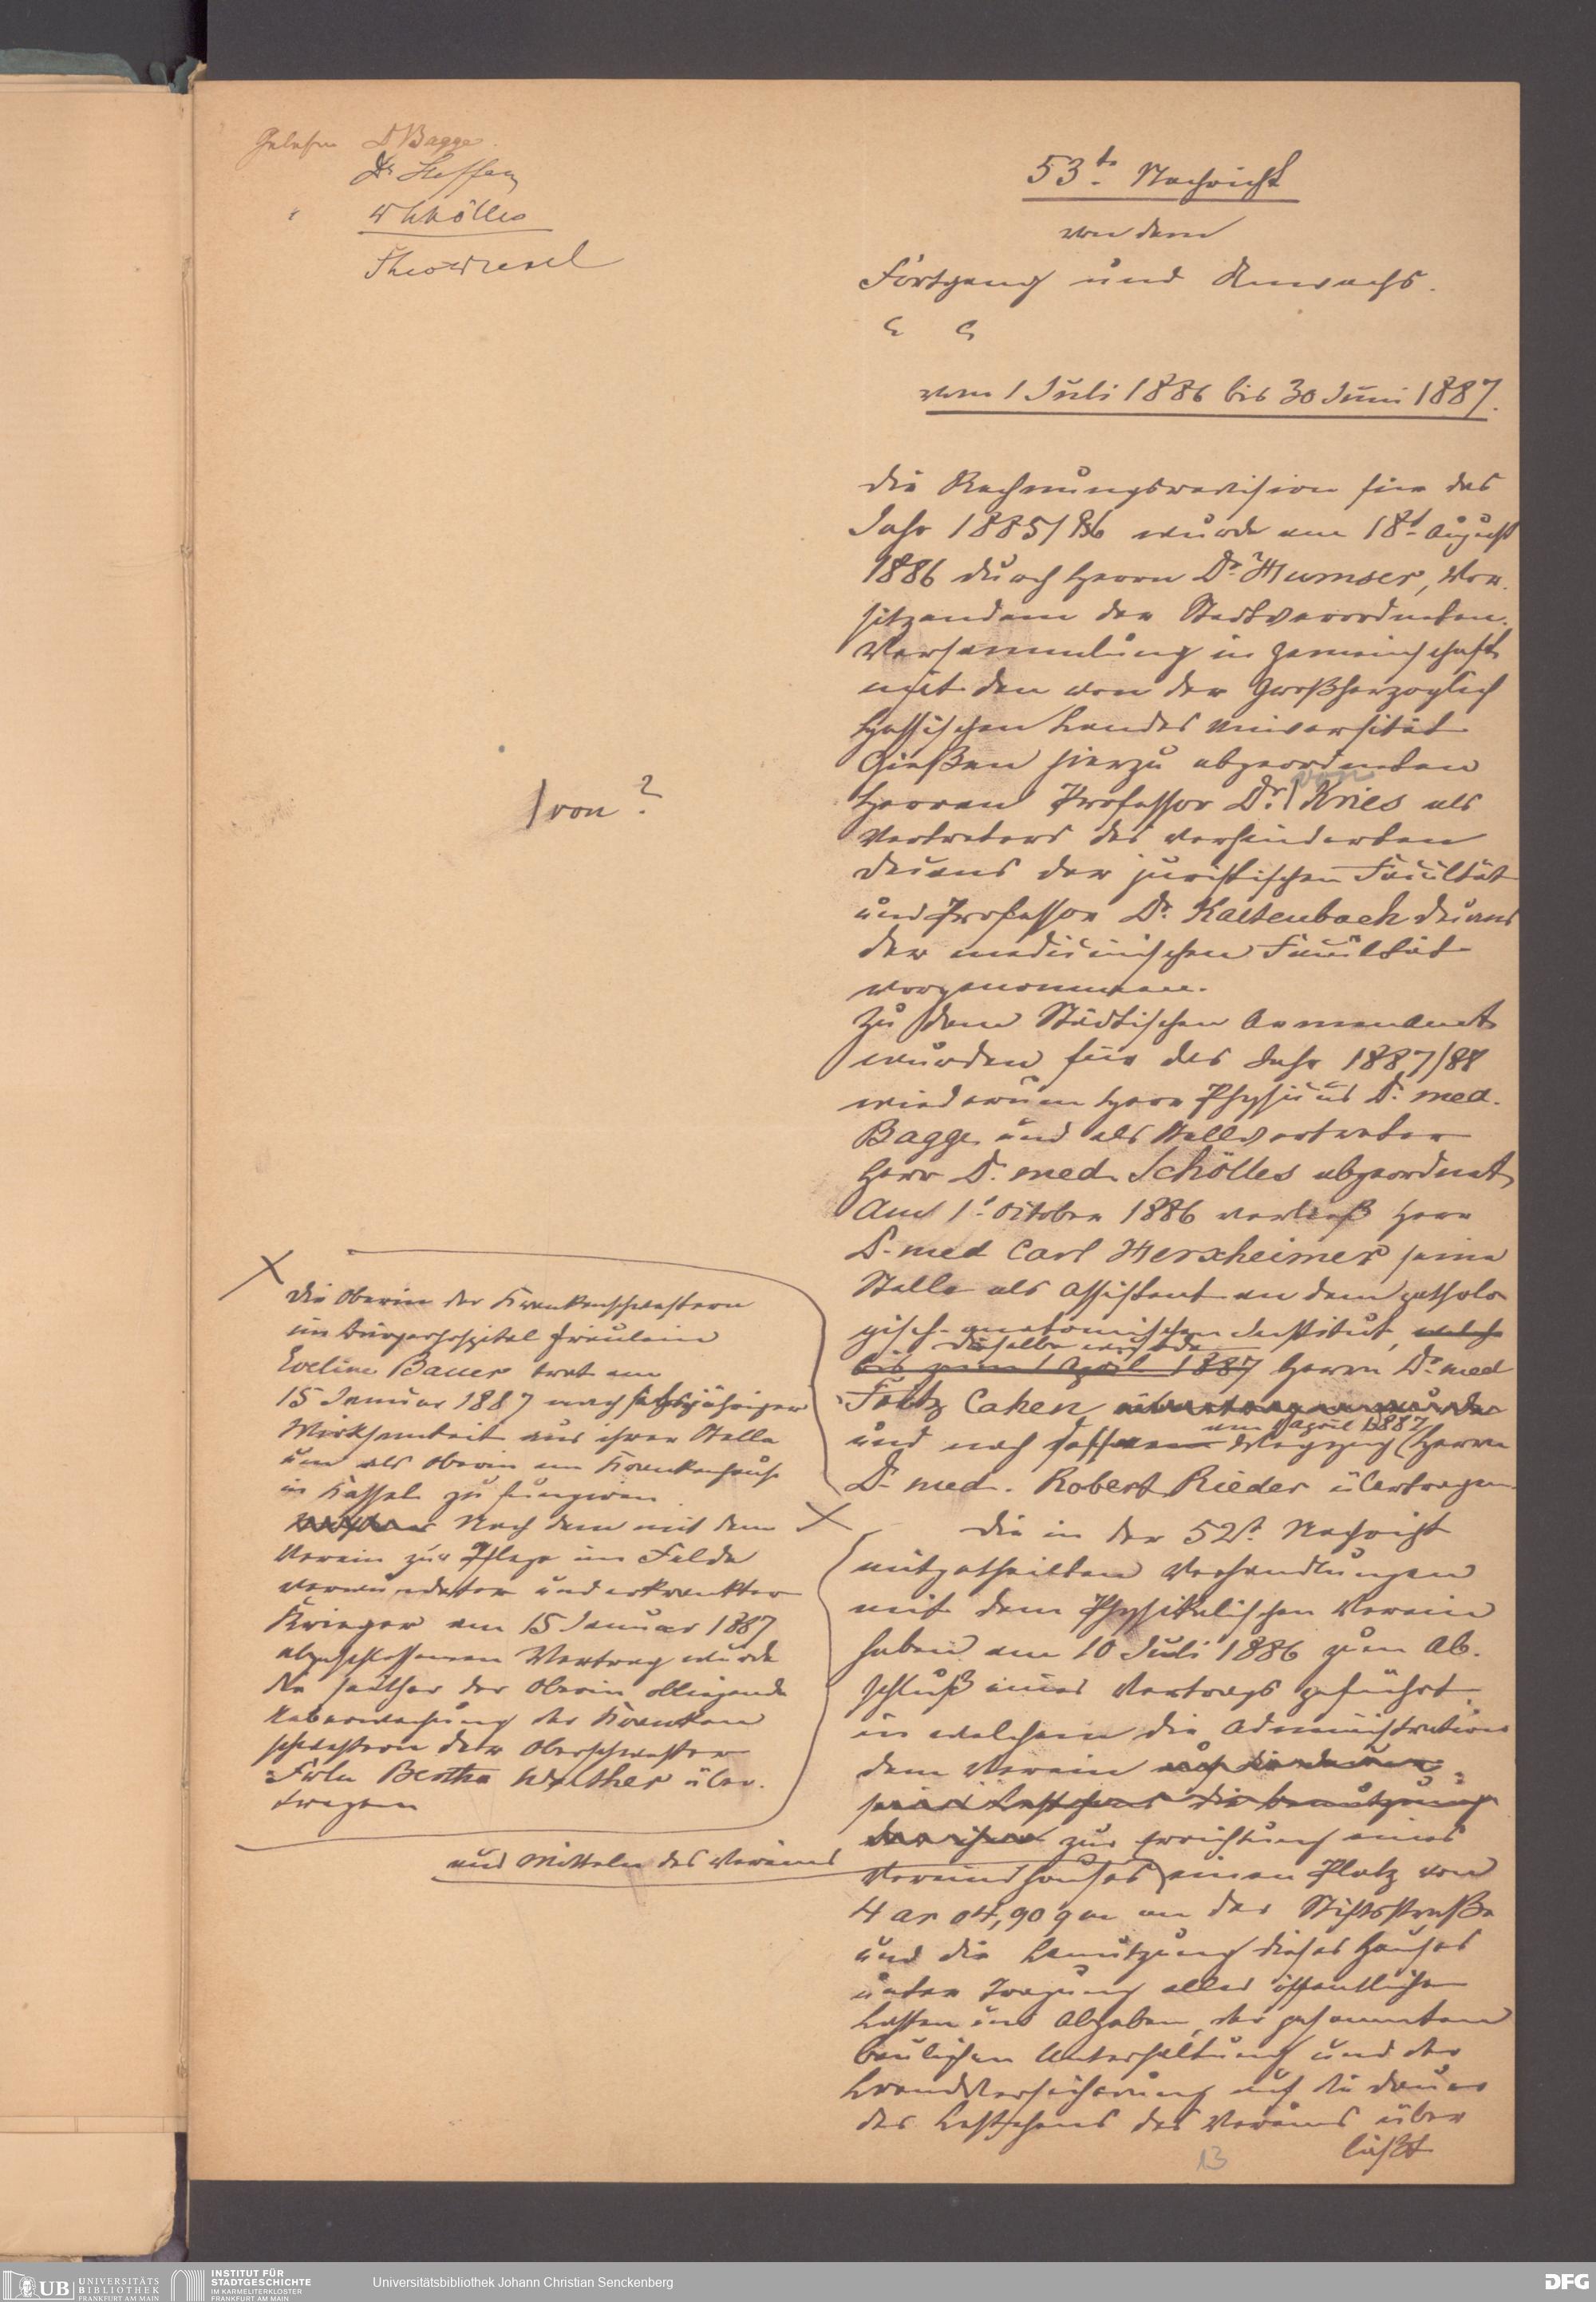 Gelesen Dr Bagge.
Dr Steffan
" W Schölles
Theo Wiesel
53te Nachricht
von dem
Fortgang und Anwachs.
vom 1 Juli 1886 bis 30 Juni 1887.
Die Rechnungsrevision für das
Jahr 1885/86 wurde am 18t August
1886 durch Herrn Dr. Humser, Vor-
sitzendem der Stadtverordneten-
Versammlung in Gemeinschaft
mit den von der Großherzoglich
Hessischen Landes Universität
Gießen hierzu abgeordneten
Herren Professor Dr. von Kries als
Vertreters des verhinderten
Decans der juristischen Facultät
und Professor Dr. Kaltenbach Decans
der medicinischen Facultät
vorgenommen.
Zu dem Städtischen Armenamt
wurden für das Jahr 1887/88
wiederum Herr Physicus Dr. med.
Bagge und als Stellvertreter
Herr Dr. med. Schölles abgeordnet
Am 1t October 1886 verließ Herr
Dr. med Carl Herxheimer seine
Stelle als Assistent an dem patholo-
gisch-anatomischen Institut, welche
dieselbe wurde
bis zum 1 April 1887 Herrn Dr. med
Fritz Cahen übertragen wurde
am 1 April 1887
und nach dessen Wegzug Herrn
Dr. med. Robert Rieder übertragen.
Die in der 52t Nachricht
mitgetheilten Verhandlungen
mit dem Physikalischen Verein
haben am 10 Juli 1886 zum Ab-
schluß eines Vertrags geführt
in welchem die Administration
dem Verein auf die Dauer
seines Bestehens die Benutzung
zur Errichtung eines
Vereinshauses einen Platz von
4 ar 04,90 qm an der Stiftstraße
und die Benutzung dieses Hauses
unter Tragung aller öffentlichen
Lasten und Abgaben, der gesammten
baulichen Unterhaltung und der
Brandversicherung auf die Dauer
des Bestehens des Vereins über
läßt
13
/ von ?
Die Oberin der Krankenschwestern
im Bürgerhospital Fräulein
Eveline Bauer trat am
15 Januar 1887 nach sechsjähriger
Wirksamkeit aus ihrer Stelle
um als Oberin am Krankenhause
in Kassel zu fungiren.
Nach dem mit dem
Verein zur Pflege im Felde
verwundeter und erkrankter
Krieger am 15 Januar 1887
abgeschlossenen Vertrag wurde
die seither der Oberin obliegende
Ueberwachung der Kranken
schwestern der Oberschwester
Frln Bertha Walther über-
tragen
aus Mitteln des Vereins
UB UNIVERSITÄTS
BIBLIOTHEK
FRANKFURT AM MAIN
INSTITUT FÜR
STADTGESCHICHTE
IM KARMELITERKLOSTER
FRANKFURT AM MAIN
Universitätsbibliothek Johann Christian Senckenberg
DFG